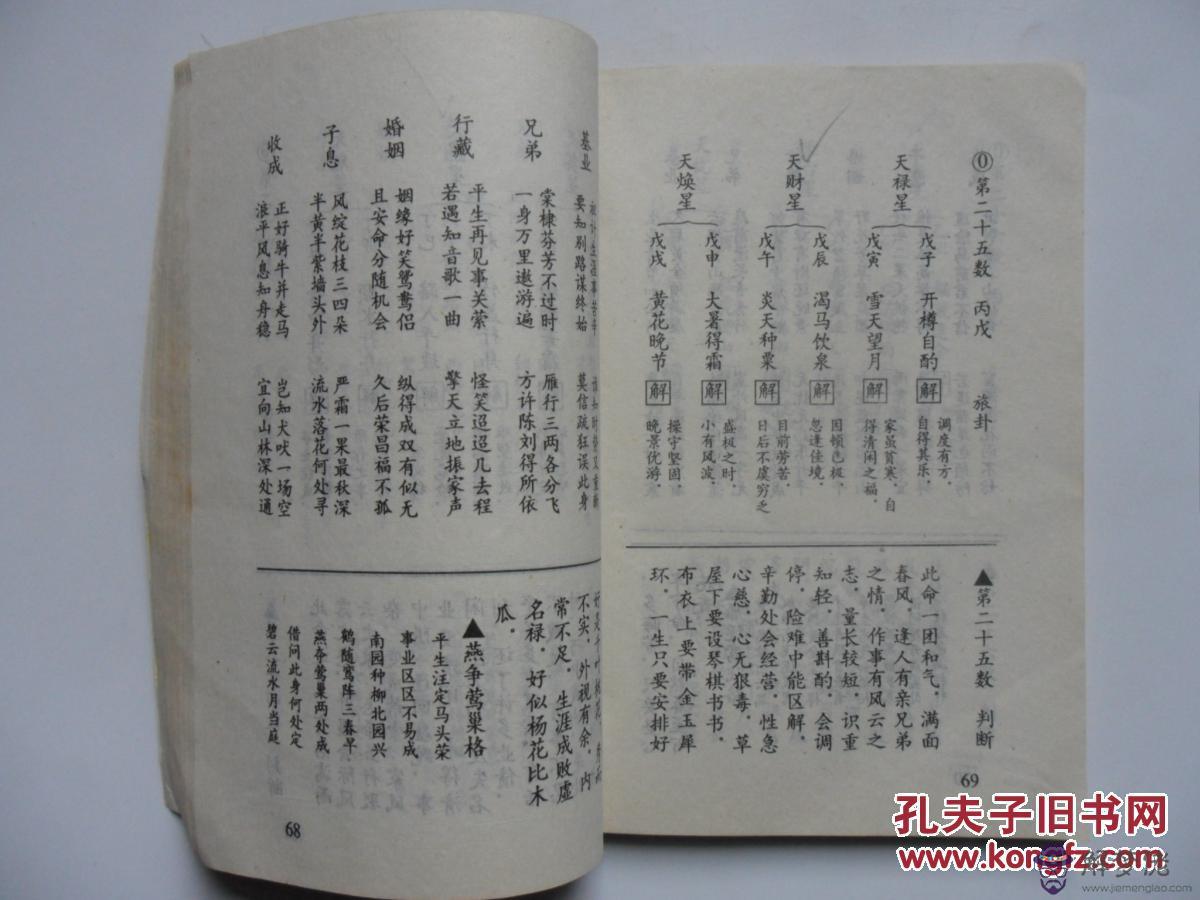 基业
要知别路谋终始 莫信疏狂误此身
兄弟
棠棣芬芳不过时 雁行三两各分飞
一身万里遨游遍 方许陈刘得所依
行藏
平生再见事关萦 怪笑迢迢几去程
若遇知音歌一曲 擎天立地振家声
婚姻
姻缘好笑鸳鸯侣 纵得成双有似无
且安命分随机会 久后荣昌福不孤
子息
风绽花枝三四朵 严霜一果最秋深
半黄半紫墙头外 流水落花何处寻
收成
正好骑牛并走马 岂知犬吠一场空
浪平风息知舟稳 宜向山林深处通
不实，外视有余，内
常不足，生涯成败虚
名禄，好似杨花比木
瓜，
▲燕争莺巢格
平生注定马头荣
事业区区不易成
南园种柳北园兴
鹤随鸾阵三春早
燕争莺巢两处成
借问此身何处定
碧云流水月当庭
68
⓪第二十五数 丙戊 旅卦
天禄星
戊子 开樽自酌 解 调度有方，
自得其乐，
戊寅 雪天望月 解 家虽贫寒，自
得清闲之福，
天财星
戊辰 渴马饮泉 解 困顿已极，
忽逢佳境，
戊午 炎天种粟 解 目前劳苦，
日后不虞穷乏
天焕星
戊申 大暑得霜 解 盛极之时，
小有风波，
戊戌 黄花晚节 解 操守坚固
晚景优游，
▲第二十五数 判断
此命一团和气，满面
春风，逢人有亲兄弟
之情，作事有风云之
志，量长较短，识重
知轻，善斟酌，会调
停，险难中能区解，
辛勤处会经营，性急
心慈，心无狠毒，草
屋下要设琴棋书书，
布衣上要带金玉犀
环，一生只要安排好
69
孔夫子旧书网
www.kongfz.com
解梦佬
www.jiemenglao.com